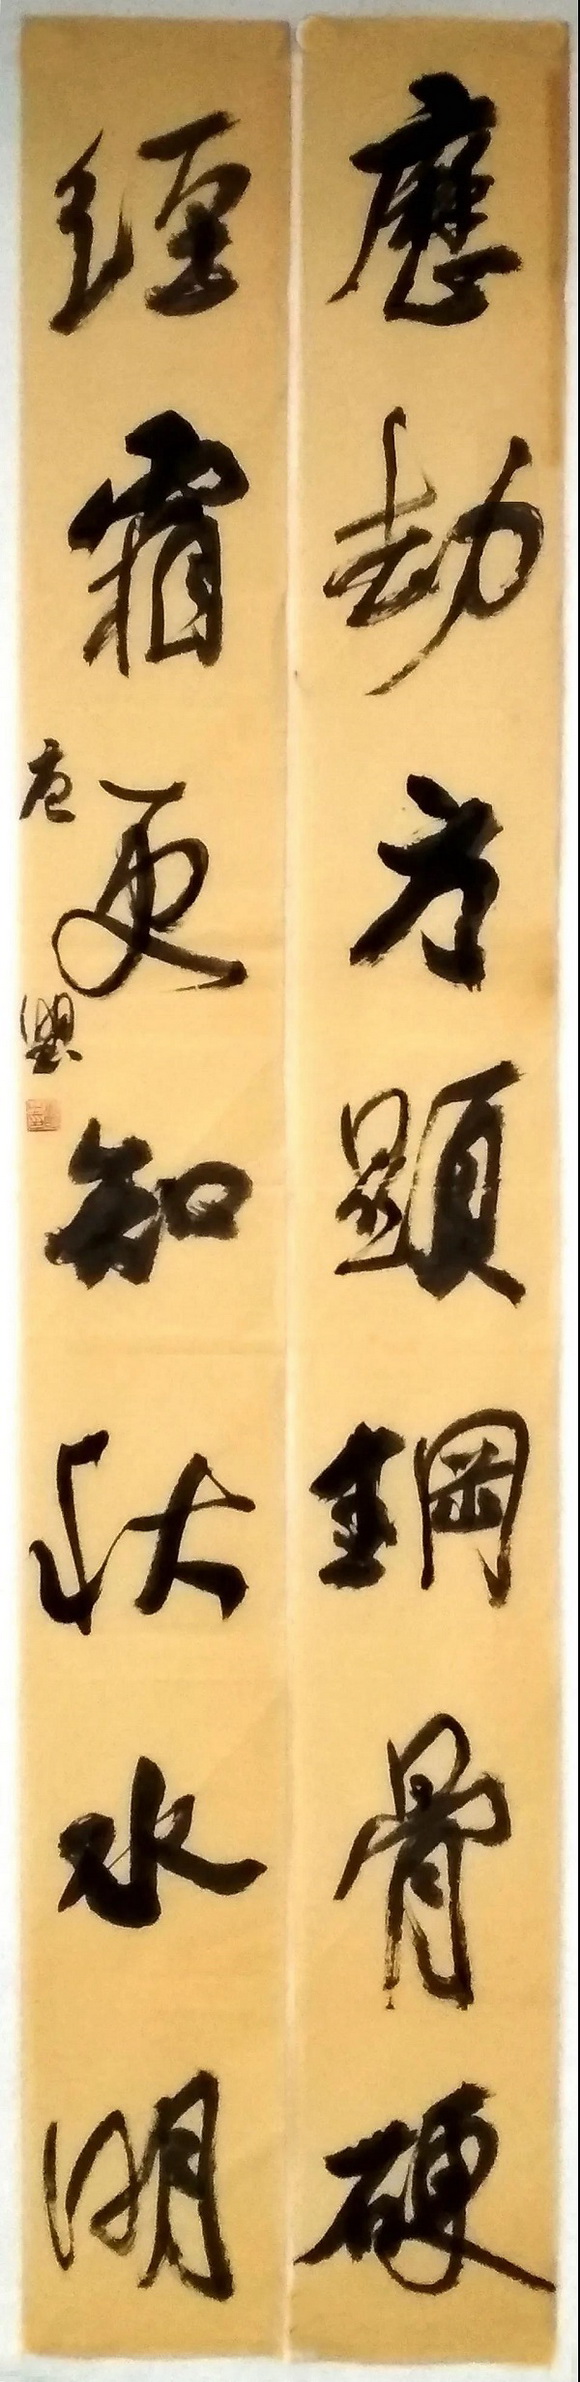 歷劫方顯鋼骨硬
經霜更知秋水明
唐興